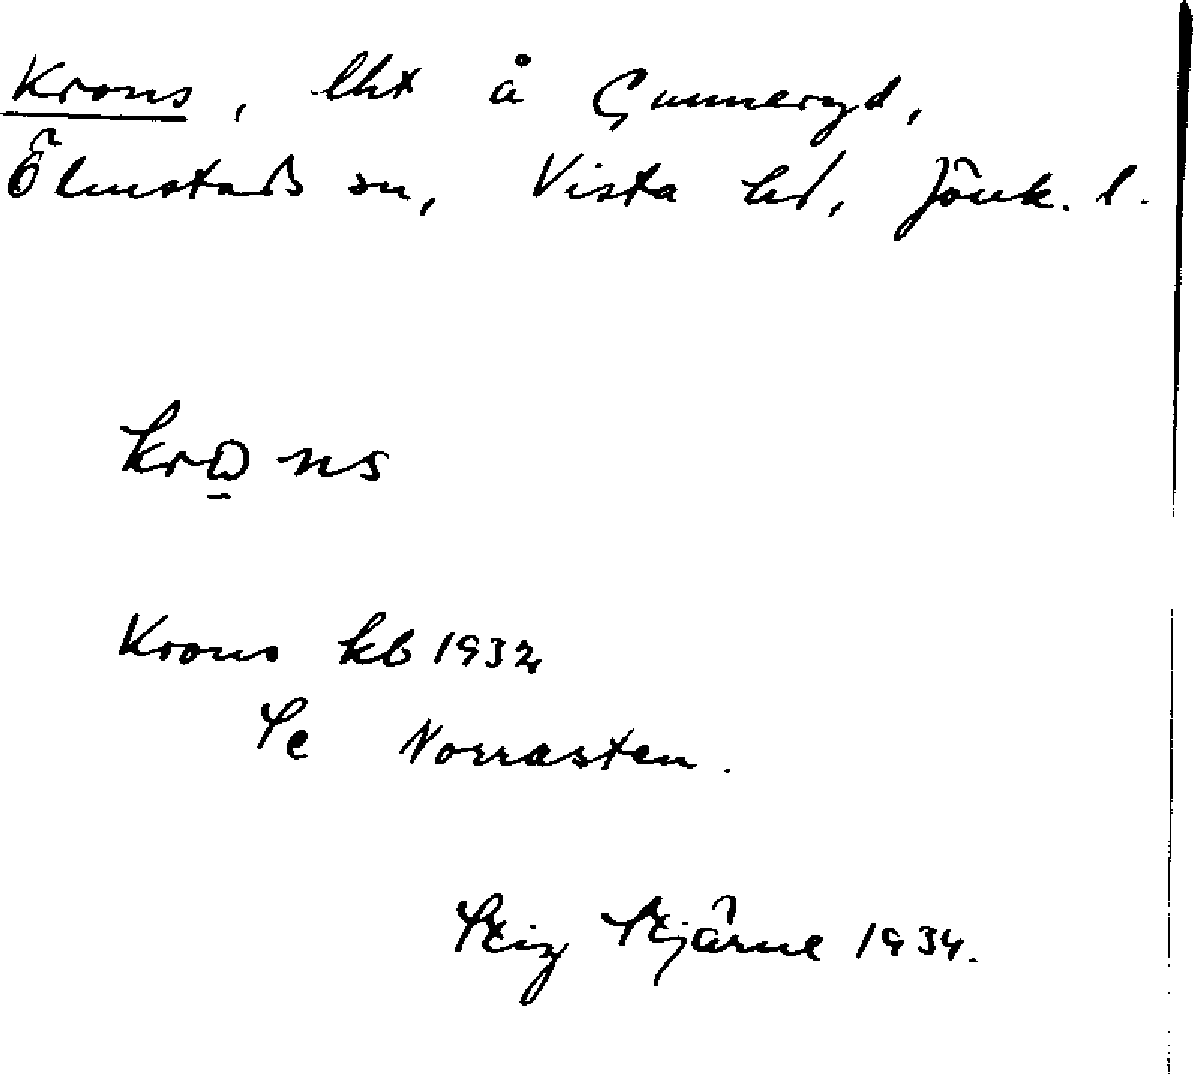 Krons, lht å Gunneryd,
Ölmstads sn, Vista hd, Jönk. l.
krωns
Krons kb 1932
Se Norrasten.
Stig Stjärne 1934.